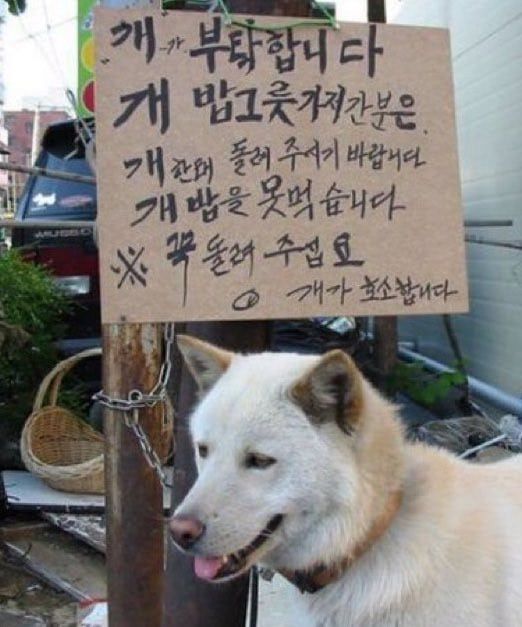 "개"가 부탁합니다
개 밥그릇 가져간분은.
개한테 돌려 주시기 바랍니다
개밥을 못먹습니다
※ 꼭 돌려 주십요
개가 호소합니다
MUSSO